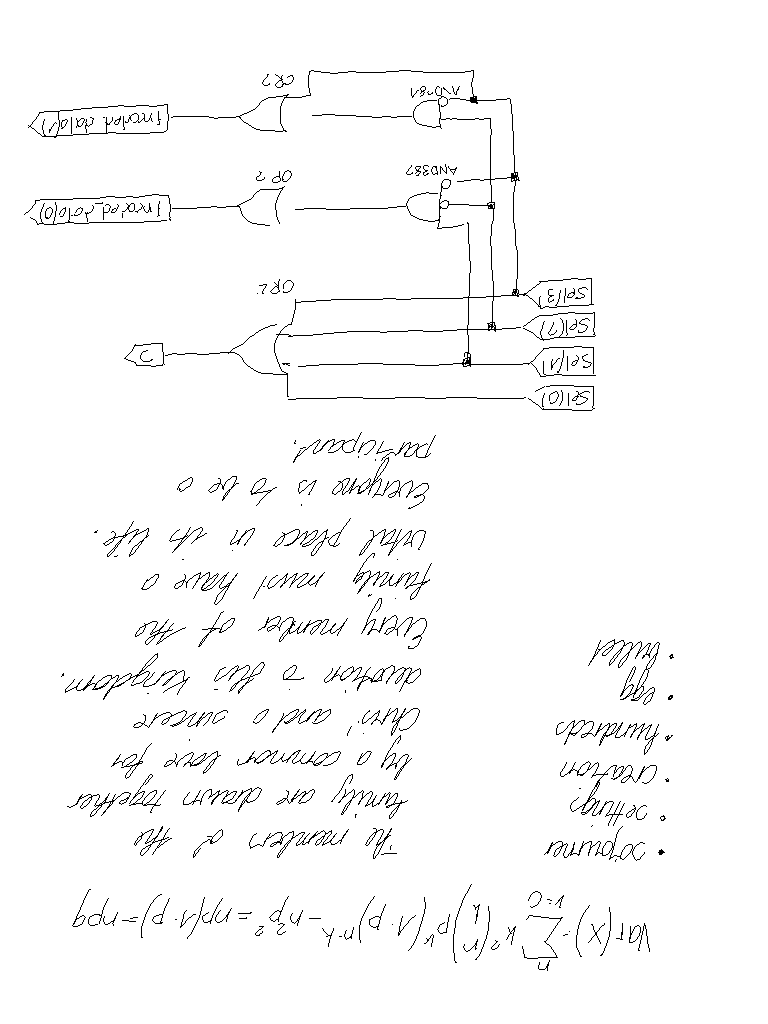 Var(X)=∑_{k=0}^{n} k²(n k)p^k(1-p)^{n-k}-n²p²=np(1-p)=npq
• sojourner
• settings
• creation
• hundreds
• egg
• bullet
The members of the
family are drawn together
by a common love for
Christ and a sincere
devotion to His kingdom.
Every member of the
family must have a
vital place in its life.
Everyone is to be a
participant.
Sel(0)
Sel(1)
Sel(2)
Sel(3)
OR4
C
AND3B2
OR2
Encoded_data(0)
AND2B1
OR2
Encoded_data(1)